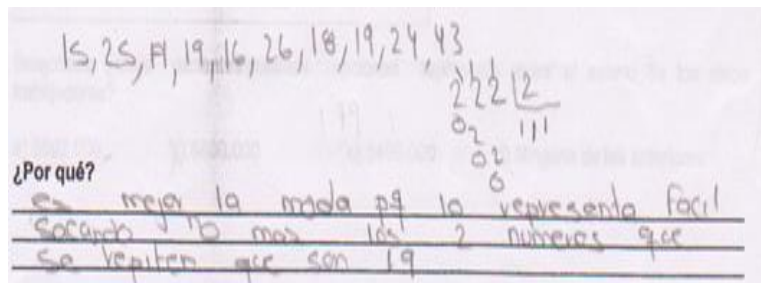 15, 25, 17, 19, 16, 26, 18, 19, 24, 43
222 | 2
02 111
02
0
¿Por qué?
es mejor la moda pq lo representa facil
socando no mas los 2 numeros que
se repiten que son 19